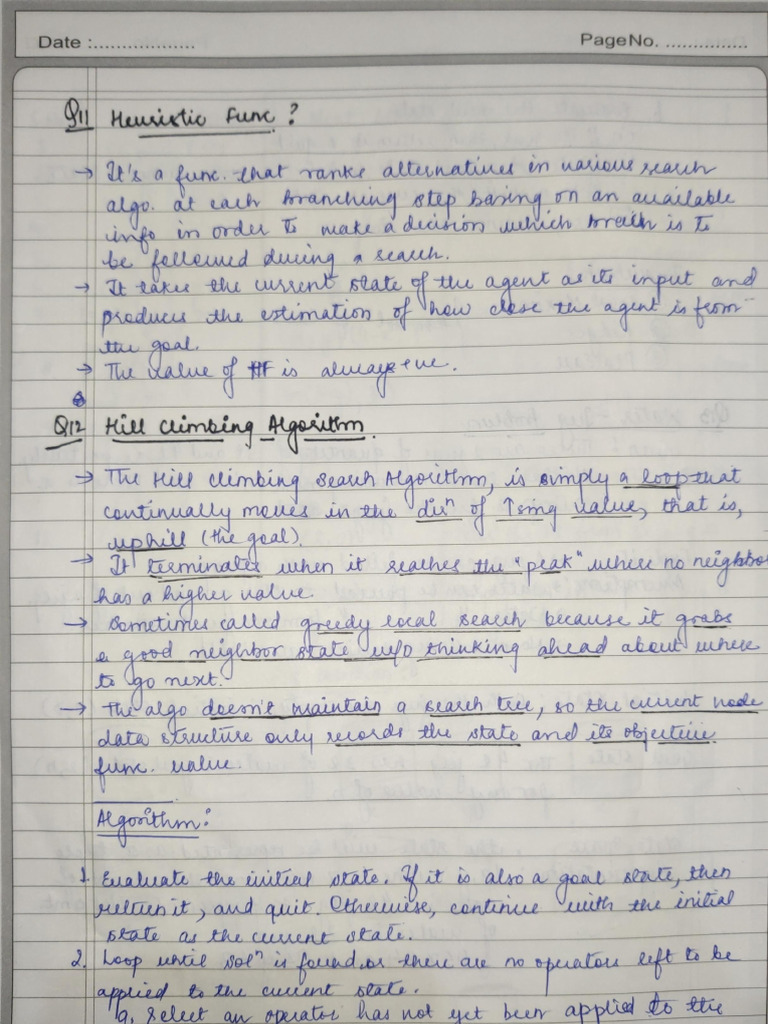 Date :..................
Page No. ...............
Q11 Heuristic Func ?
→ It's a func. that ranks alternatives in various search
algo. at each branching step basing on an available
info in order to make a decision which brach is to
be followed during a search.
→ It takes the current state of the agent as its input and
produces the estimation of how close the agent is from
the goal.
→ The value of H is always +ve.
Q12 Hill Climbing Algorithm.
→ The Hill climbing search Algorithm, is simply a loop that
continually moves in the dirⁿ of ↑sing value, that is,
uphill (the goal).
→ It terminates when it reaches the "peak" where no neighbor
has a higher value.
→ Sometimes called greedy local search because it grabs
a good neighbor state w/o thinking ahead about where
to go next.
→ The algo doesn't maintain a search tree, so the current node
data structure only records the state and its objective
func. value.
Algorithm:
1. Evaluate the initial state. If it is also a goal state, then
return it, and quit. Otherwise, continue with the initial
state as the current state.
2. Loop until solⁿ is found or there are no operators left to be
applied to the current state.
a. Select an operator has not yet been applied to the